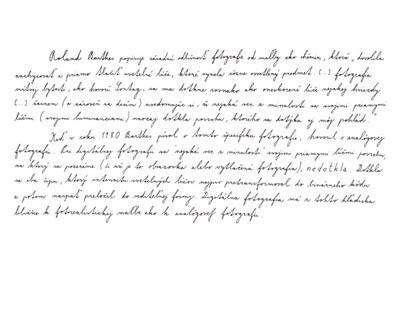 Roland Barthes popisuje zásadnú odlišnosť fotografie od maľby ako chémiu, ktorá „dovolila
zachytávať a priamo tlačiť svetelné lúče, ktoré vysiela rôzne osvetlený predmet. [...] fotografia
mŕtvej bytosti, ako hovorí Sontag, sa ma dotkne rovnako ako oneskorené lúče nejakej hviezdy.
[...] (a zároveň sa desím) uvedomujúc si, že nejaká vec z minulosti sa svojimi priamymi
lúčmi (svojimi luminanciami) naozaj dotkla povrchu, ktorého sa dotýka aj môj pohľad."
Keď v roku 1980 Barthes písal o tomto špecifiku fotografie, hovoril o analógovej
fotografii. Pri digitálnej fotografii sa nejaká vec z minulosti svojimi priamymi lúčmi povrchu,
na ktorý sa pozeráme (či už je to obrazovka alebo vytlačená fotografia), nedotkla. Dotkla
sa iba čipu, ktorý intenzitu svetelných lúčov najprv pretransformoval do binárneho kódu
a potom naspäť preložil do viditeľnej formy. Digitálna fotografia má z tohto hľadiska
bližšie k fotorealistickej maľbe ako k analógovej fotografii.